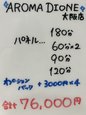 AROMA DIONE
大阪店
180分
パネル… 60分×2
90分
120分
オプション
パック +3000円×4
合計 76,000円